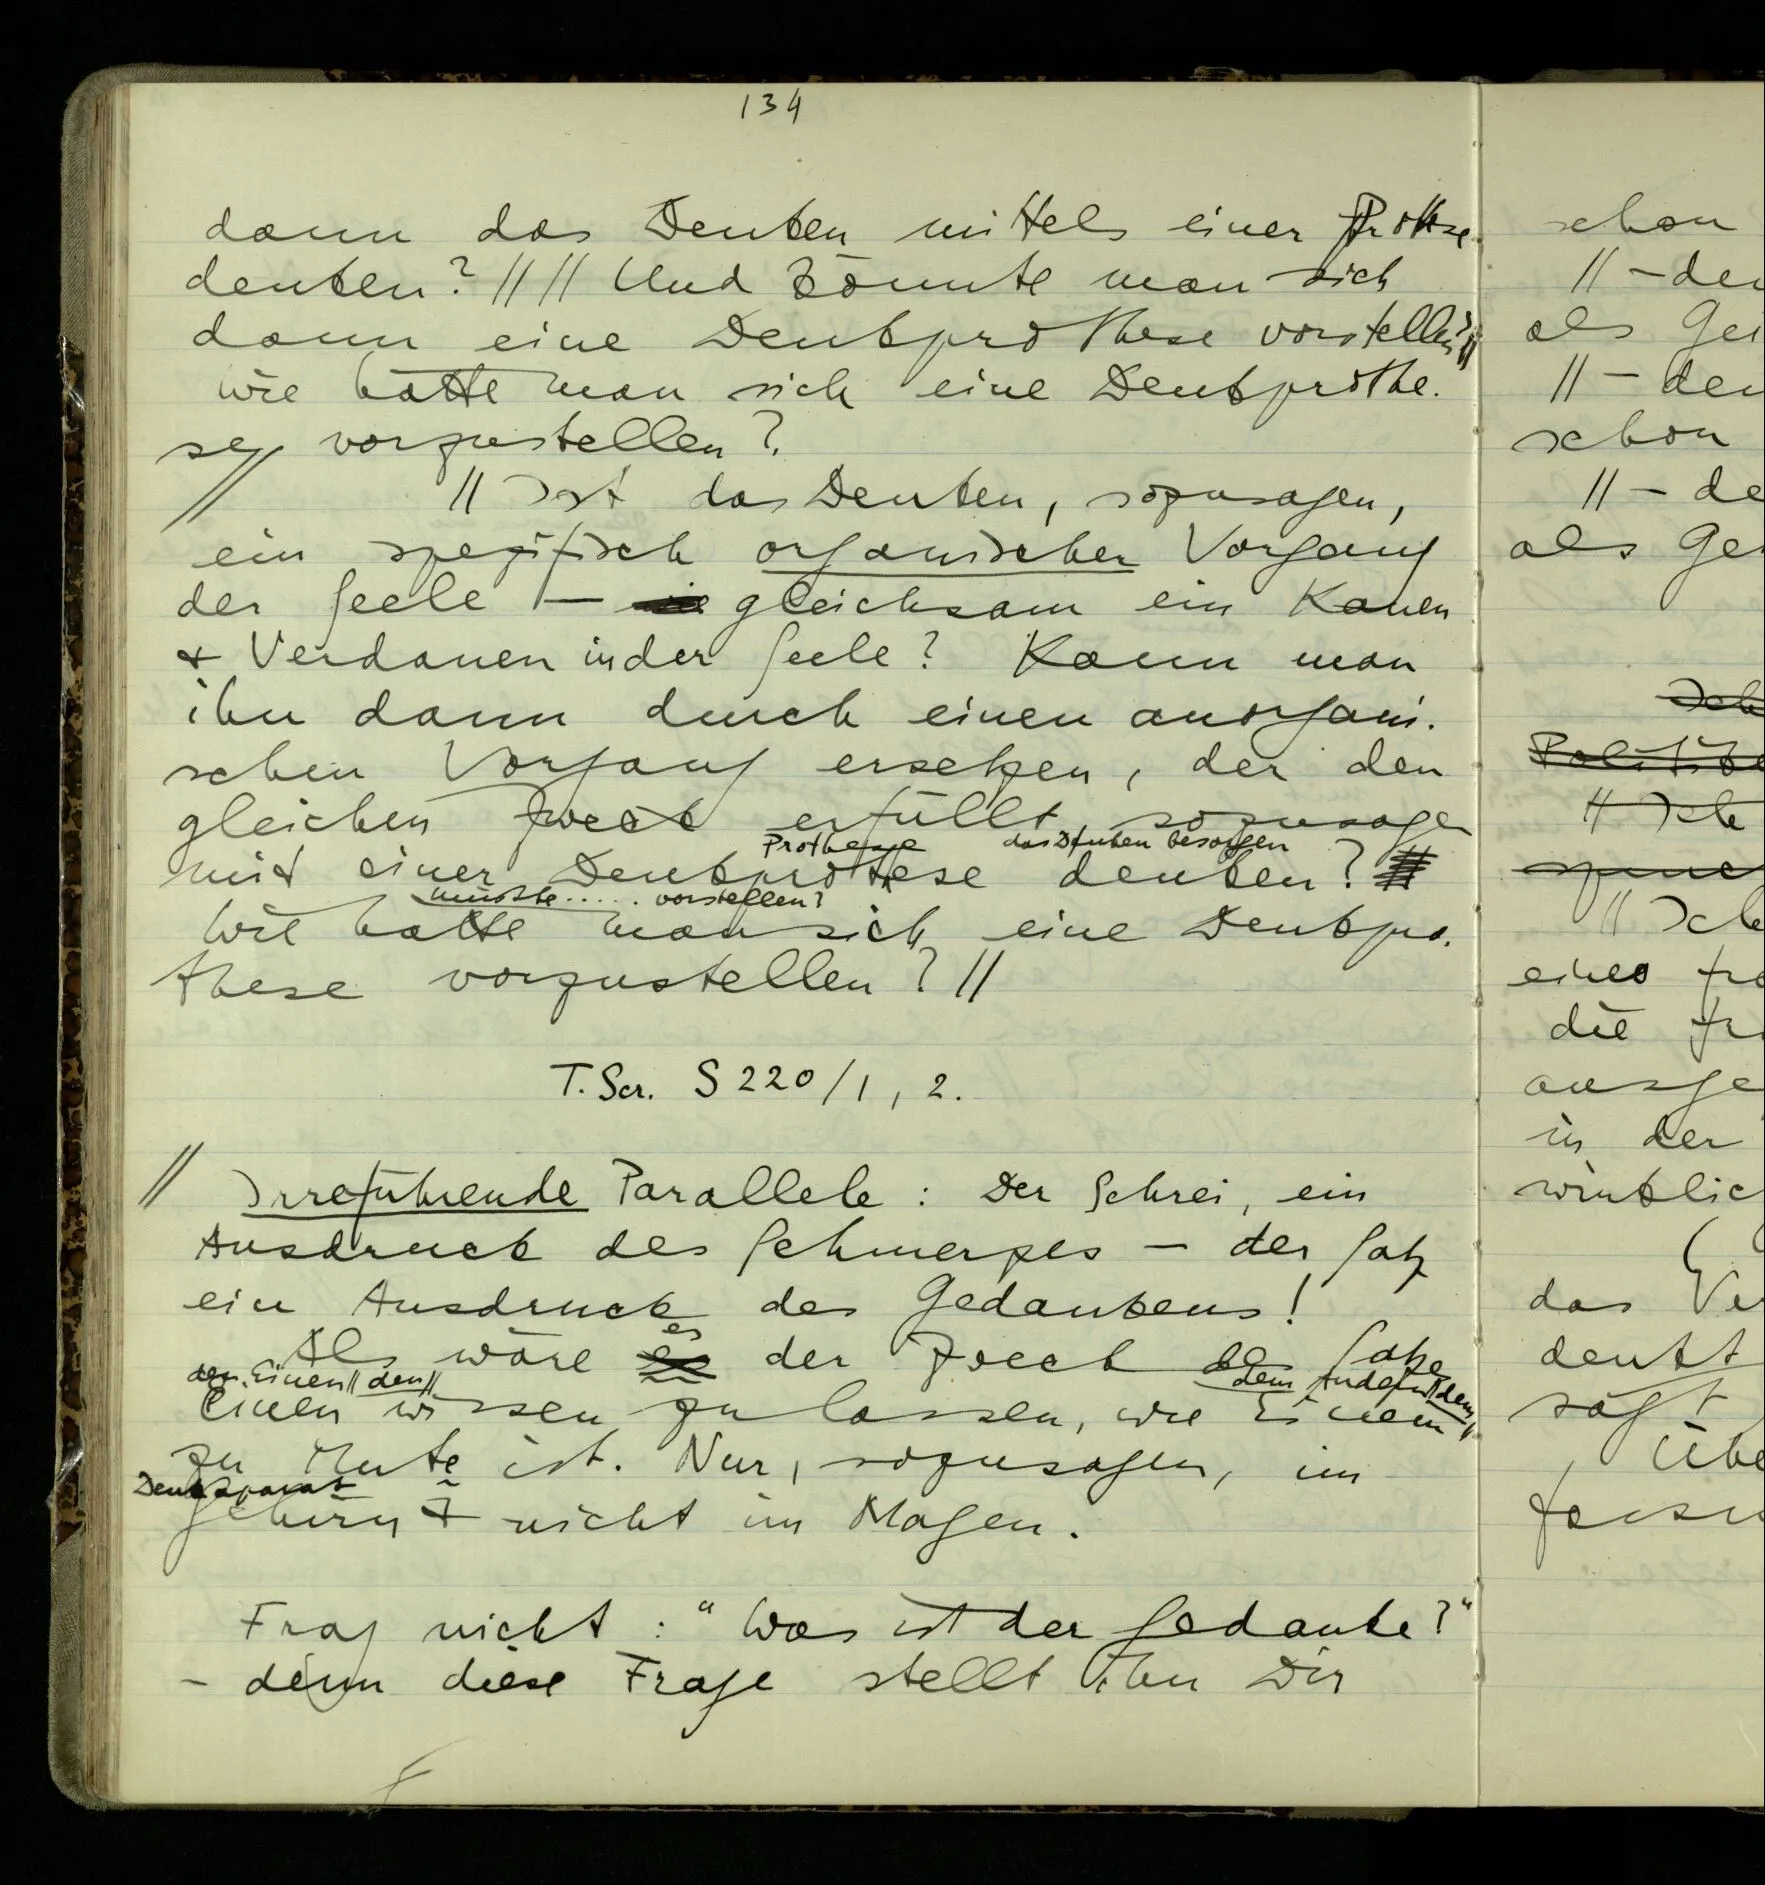 134
dann das Denken mittels einer Prothese
denken? // // Und könnte man sich
dann eine Denkprothese vorstellen? //
wie hätte man sich eine Denkprothe-
se vorzustellen?
// // Ist das Denken, sozusagen,
ein spezifisch organischer Vorgang
der Seele – gleichsam ein Kauen
& Verdauen in der Seele? Kann man
ihn dann durch einen anorgani-
schen Vorgang ersetzen, der den
gleichen Zweck erfüllt, sozusagen
Prothese das Denken besorgen
mit einer Denkprothese denken? //
müßte ..... vorstellen?
Wie hätte man sich eine Denkpro-
these vorzustellen? //
T.Scr. S 220/1, 2.
// Irreführende Parallele: Der Schrei, ein
Ausdruck des Schmerzes – der Satz
ein Ausdruck des Gedankens!
es
Als wäre es der Zweck des Satzes
den Einen // den // dem Andern // dem //
Einen wissen zu lassen, wie Einem
zu Mute ist. Nur, sozusagen, im
Denkapparat
Gehirn & nicht im Magen.
Frag nicht: “Was ist der Gedanke?”
– denn diese Frage stellt ihn Dir
schon
// –
als
// –
schon
// –
als
// Ich
// Ich
eines
die
in der
(
das
denkt
sagt